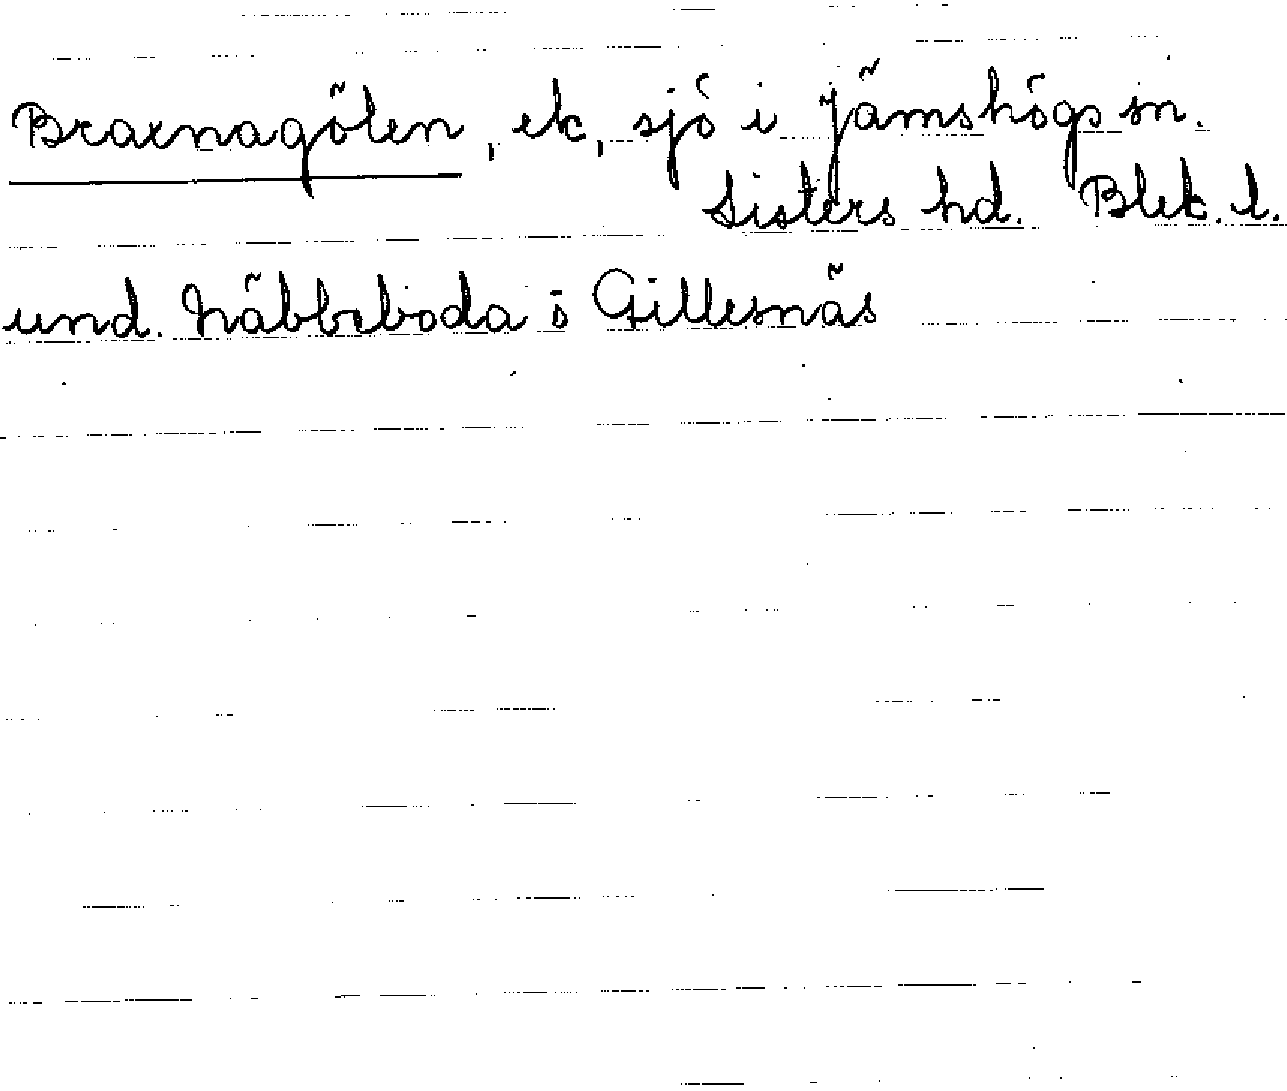 Braxnagölen, ek, sjö i Jämshögs sn.
Listers hd. Blek. l.
und. Näbbeboda ö Gillesnäs